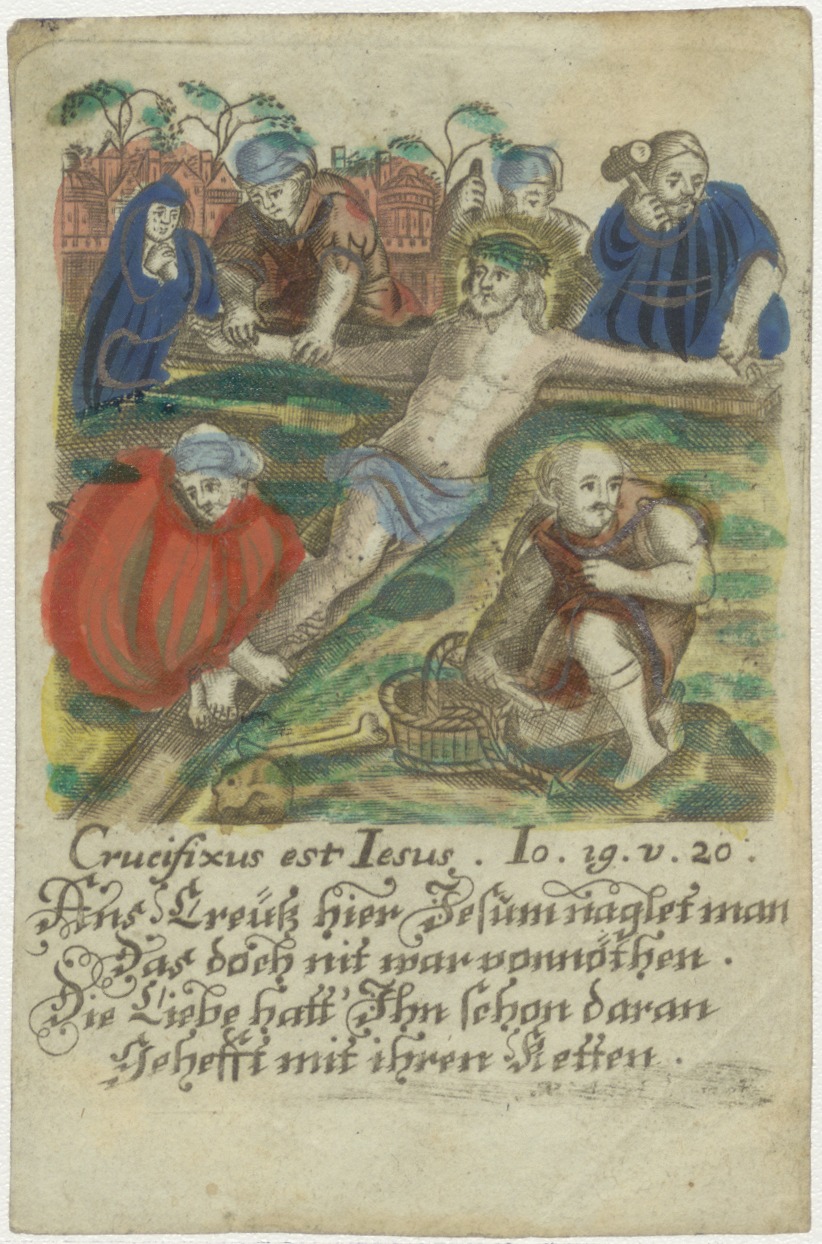 Crucifixus est Iesus . Io . 19 . v . 20 .
Ans Creütz hier Jesum naglet man
Das doch nit war vonnöthen .
Die Liebe hatt' Ihn schon daran
Gehefft mit ihren Ketten .